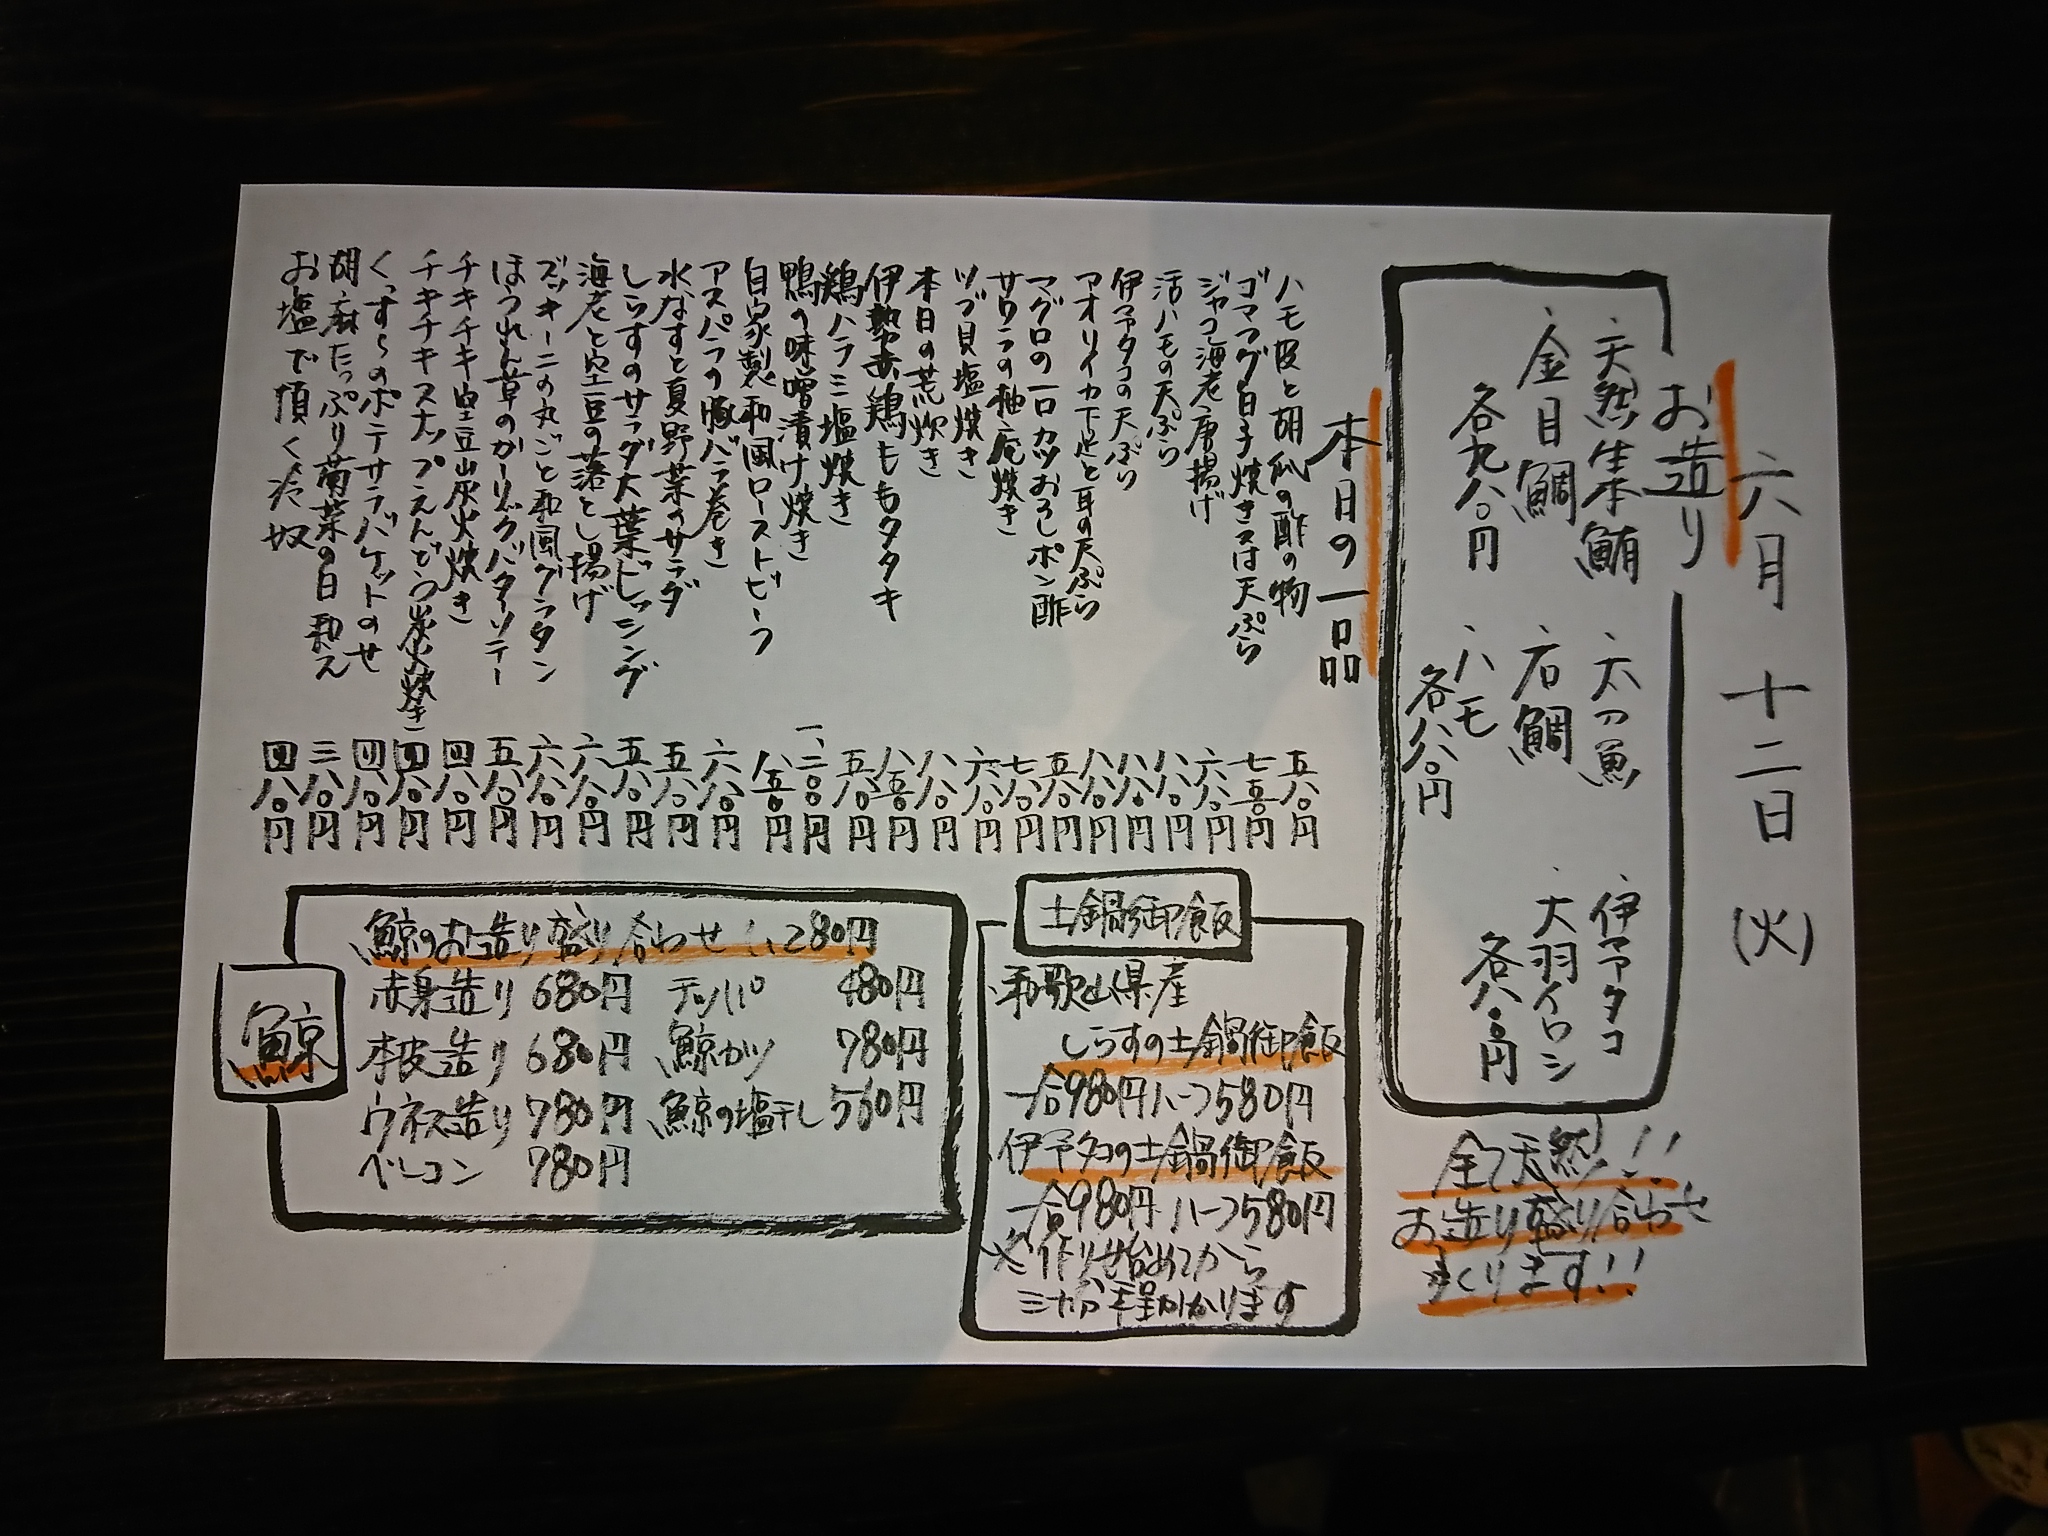 六月 十二日 (火)
お造り
・天然生本鮪 ・太刀魚 ・伊予タコ
・金目鯛 ・石鯛 ・大羽イワシ
各九八〇円 ・ハモ 各八八〇円 各八八〇円
全て天然!!
お造り盛り合わせ
つくります!!
本日の一品
ハモ皮と胡瓜の酢の物 五八〇円
ゴマフグ白子焼き又は天ぷら 七五〇円
ジャコ海老唐揚げ 六八〇円
活ハモの天ぷら 八八〇円
伊予タコの天ぷら 八八〇円
アオリイカ下足と耳の天ぷら 八八〇円
マグロの一口カツおろしポン酢 五八〇円
サワラの柚庵焼き 七八〇円
ツブ貝塩焼き 六八〇円
本日の荒炊き 八八〇円
伊勢赤鶏ももタタキ 八五〇円
鶏ハラミ塩焼き 五八〇円
鴨の味噌漬け焼き 一、二〇〇円
自家製和風ローストビーフ 八五〇円
アスパラの豚バラ巻き 六八〇円
水なすと夏野菜のサラダ 五八〇円
しらすのサラダ大葉ドレッシング 五八〇円
海老と空豆の落とし揚げ 六八〇円
ズッキーニの丸ごと和風グラタン 六八〇円
ほうれん草のガーリックバターソテー 五八〇円
チキチキ空豆炭火焼き 四八〇円
チキチキスナップえんどう炭火焼き 四八〇円
くっすらのポテサラバケットのせ 四八〇円
胡麻たっぷり菊菜の白和え 三八〇円
お塩で頂く冷奴 四八〇円
土鍋御飯
和歌山県産
しらすの土鍋御飯
一合980円ハーフ580円
伊予タコの土鍋御飯
一合980円ハーフ580円
※作り始めてから
三十分程かかります
鯨
鯨のお造り盛り合わせ 1,280円
赤身造り 680円 テッパ 480円
本皮造り 680円 鯨カツ 780円
ウネス造り 780円 鯨の塩干し 560円
ベーコン 780円